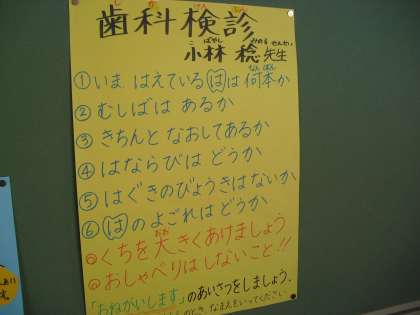 しか けんしん
歯科検診
こばやし みのる せんせい
小林 稔 先生
なんぼん
①いま はえている はは 何本か
②むしばは あるか
③きちんと なおしてあるか
④はならびは どうか
⑤はぐきのびょうきはないか
⑥はのよごれは どうか
おお
くちを大きくあけましょう
おしゃべりはしないこと!!
「おねがいします」のあいさつをしましょう。
のとき、なまえをいってください